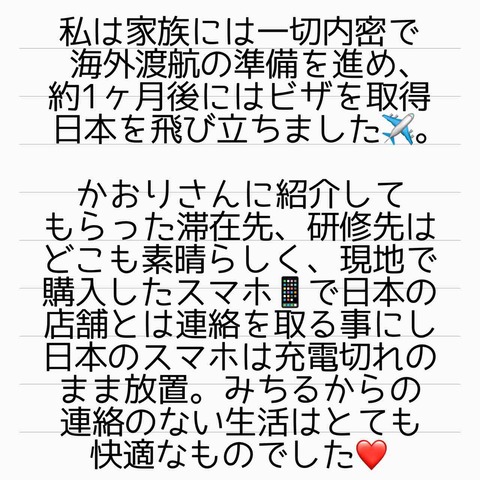 私は家族には一切内密で
海外渡航の準備を進め、
約1ヶ月後にはビザを取得
日本を飛び立ちました✈️。
かおりさんに紹介して
もらった滞在先、研修先は
どこも素晴らしく、現地で
購入したスマホ📱で日本の
店舗とは連絡を取る事にし
日本のスマホは充電切れの
まま放置。みちるからの
連絡のない生活はとても
快適なものでした❤️